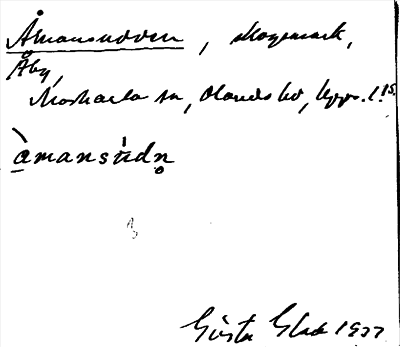 Åmansudden, skogsmark,
Åby,
Morkarla sn, Olands hd, Upps. l. 15.
àmansùdn̥
Gösta Glad 1933